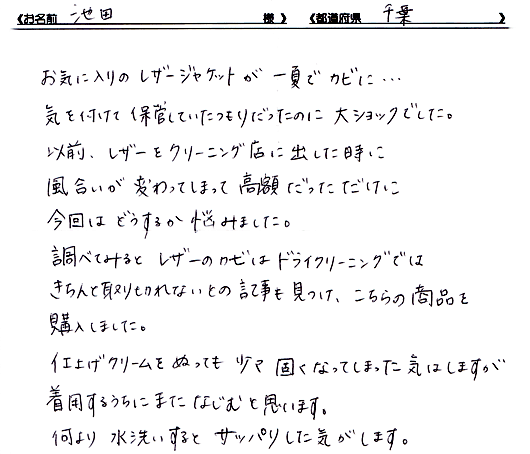 《お名前 池田 様 》《都道府県 千葉 》
お気に入りの レザージャケットが 一夏で カビに…
気を付けて 保管していたつもりだったのに 大ショックでした。
以前、レザーをクリーニング店に 出した時に
風合いが 変わってしまって 高額 だった だけに
今回は どうするか 悩みました。
調べてみると レザーのカビは ドライクリーニングでは
きちんと取りきれないとの 記事も 見つけ、こちらの商品を
購入しました。
仕上げクリームを ぬっても 少々 固くなってしまった 気はしますが
着用するうちに また なじむと思います。
何より 水洗いすると サッパリした 気がします。